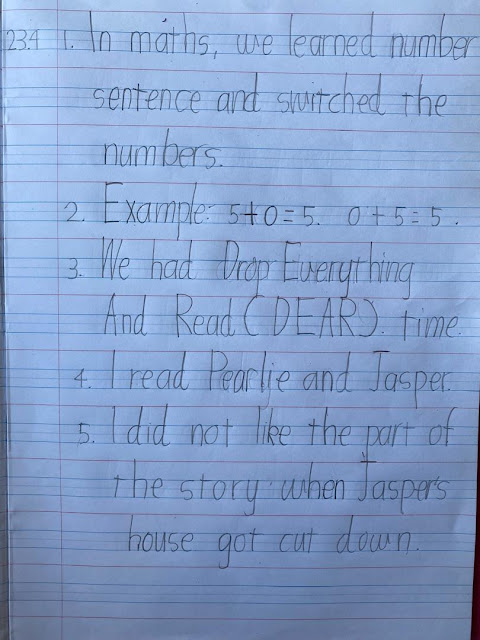 23.4 1. In maths, we learned number
sentence and switched the
numbers.
2. Example: 5+0=5. 0+5=5.
3. We had Drop Everything
And Read (DEAR). time.
4. I read Pearlie and Jasper.
5. I did not like the part of
the story when Jasper's
house got cut down.